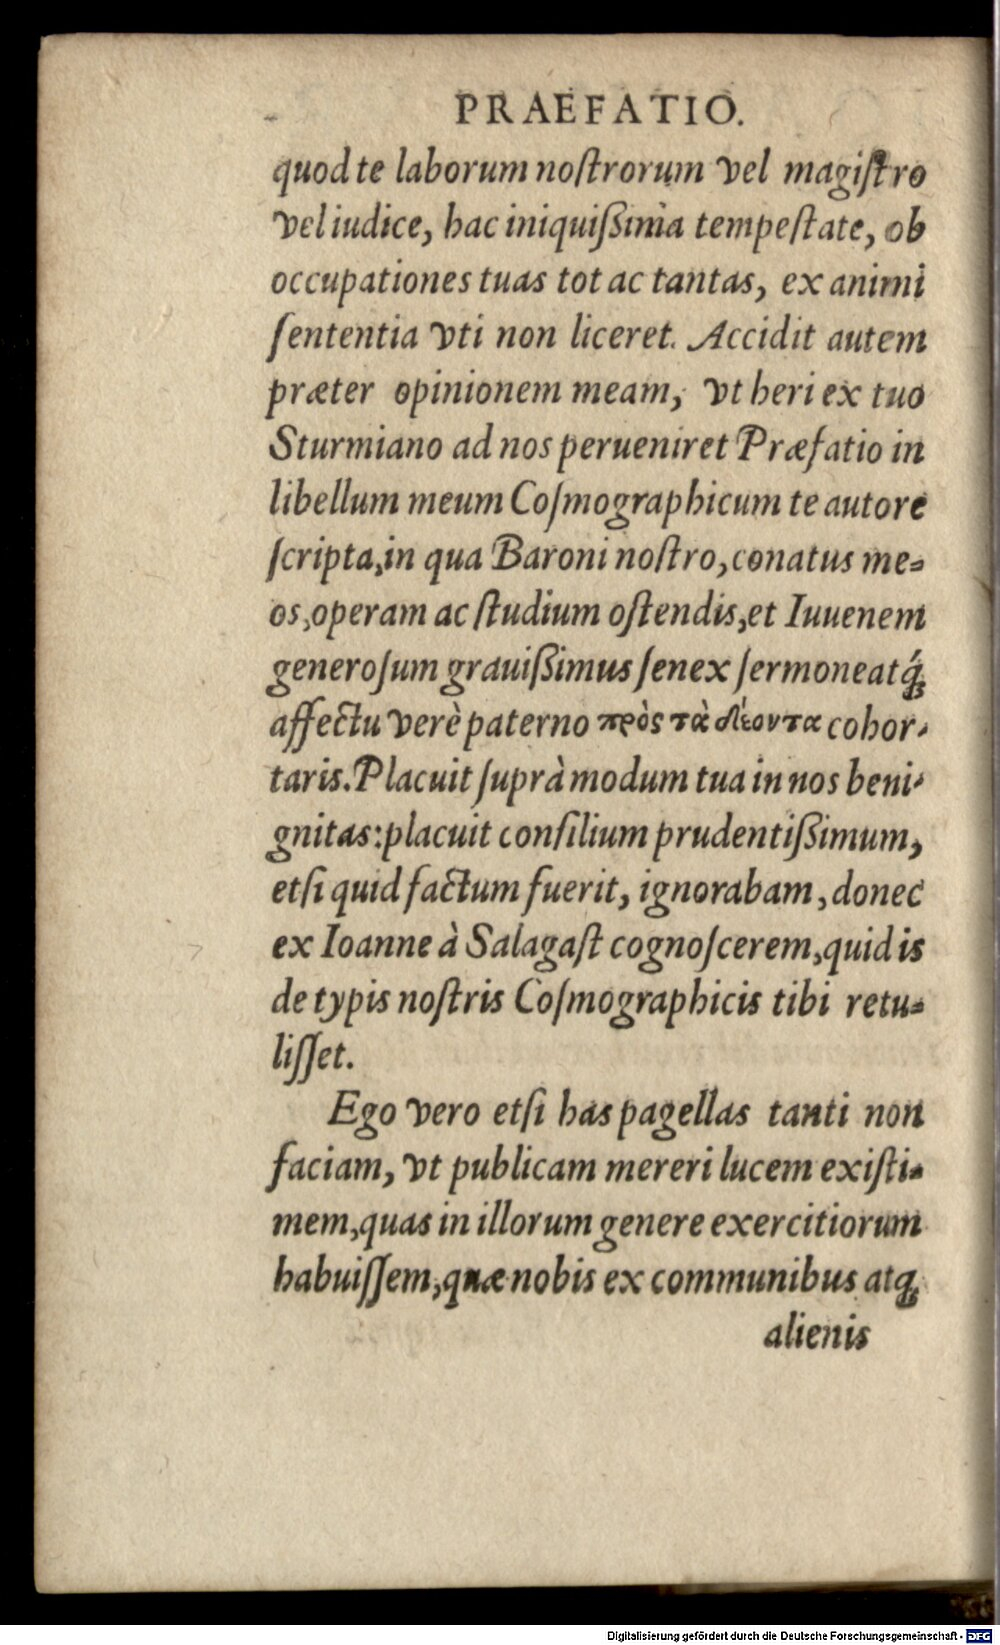 PRAEFATIO.
quod te laborum noſtrorum vel magiſtro
vel iudice, hac iniquißima tempeſtate, ob
occupationes tuas tot ac tantas, ex animi
ſententia vti non liceret. Accidit autem
præter opinionem meam, vt heri ex tuo
Sturmiano ad nos perueniret Præfatio in
libellum meum Coſmographicum te autore
ſcripta, in qua Baroni noſtro, conatus me=
os, operam ac ſtudium oſtendis, et Iuuenem
generoſum grauißimus ſenex ſermone atq́;
affectu verè paterno πρὸς τὰ δέοντα cohor-
taris. Placuit ſuprà modum tua in nos beni-
gnitas: placuit conſilium prudentißimum,
etſi quid factum fuerit, ignorabam, donec
ex Ioanne à Salagaſt cognoſcerem, quid is
de typis noſtris Coſmographicis tibi retu=
liſſet.
Ego vero etſi has pagellas tanti non
faciam, vt publicam mereri lucem exiſti=
mem, quas in illorum genere exercitiorum
habuiſſem, quæ nobis ex communibus atq;
alienis
Digitalisierung gefördert durch die Deutsche Forschungsgemeinschaft - DFG